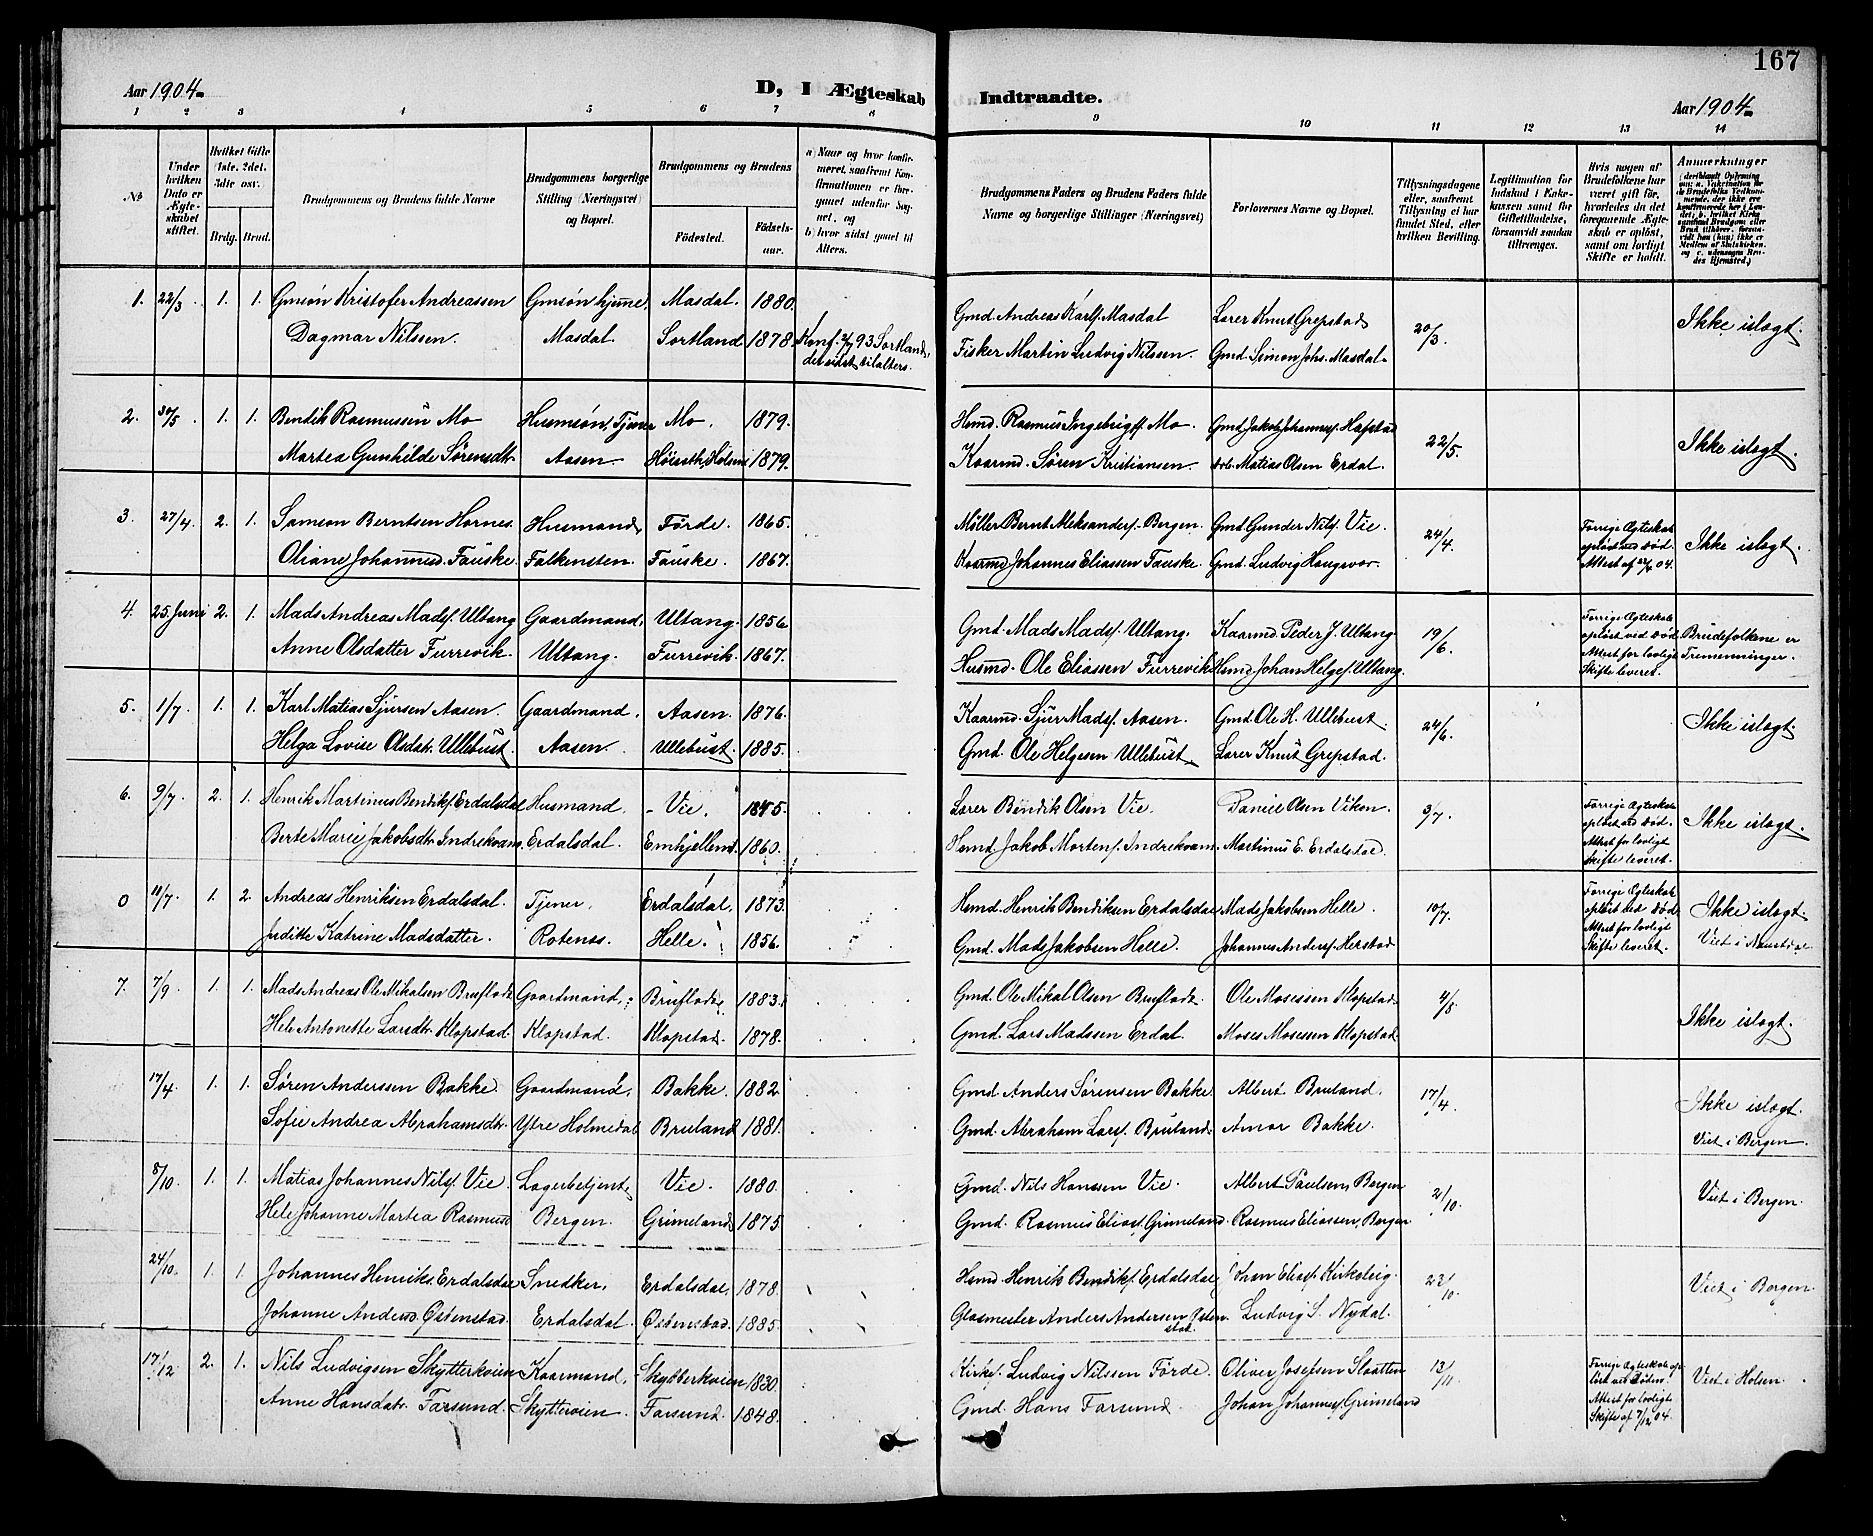 167
Aar 1904.
D, I Ægteskab Indtraadte.
Aar 1904.
1 2 3 4 5 6 7 8 9 10 11 12 13 14
№
Under hvilken Dato er Ægteskabet stiftet.
Hvilket Gifte (1ste, 2det, 3die osv.
Brdg. Brud.
Brudgommens og Brudens fulde Navne
Brudgommens borgerlige Stilling (Næringsvei) og Bopæl.
Brudgommens og Brudens
Fødested.
Fødselsaar.
a) Naar og hvor konfirmeret, saafremt Konfirmationen er foregaaet udenfor Sognet, og
b) hvor sidst gaaet til Alters.
Brudgommens Faders og Brudens Faders fulde Navne og borgerlige Stillinger (Næringsvei)
Forlovernes Navne og Bopæl.
Tillysningsdagene eller, saafremt Tillysning ei har fundet Sted, efter hvilken Bevilling.
Legitimation for Indskud i Enkekassen samt for Giftetilladelse, forsaavidt saadan tiltrænges.
Hvis nogen af Brudefolkene har været gift før, hvorledes da det foregaaende Ægteskab er opløst, samt om lovligt Skifte er holdt.
Anmærkninger (deriblandt Oplysning om: a. Vaccination for de Brudefolks Vedkommende, der ikke ere konfirmerede her i Landet; b. hvilket Kirkesamfund Brudgom eller Brud tilhører, forsaavidt han (hun) ikke er Medlem af Statskirken, og c. udensogns Brudes Hjemsted.)
1. 22/3 1. 1. Gmsøn Kristofer Andreassen Gmsøn hjeme, Masdal. 1880. Gmd Andreas Karls. Masdal Lærer Knut Grepstad 20/3. Ikke islegt.
Dagmar Nilssen. Masdal. Sortland 1878. Konf. 2/7 93 Sortland, der sidst til alters. Fisker Martin Ludvig Nilssen. Gmd. Simon Johs. Masdal.
2. 30/5 1. 1. Bendik Rasmussen Mo Husmsøn, Tjener Mo. 1879. Hsmd. Rasmus Ingebrigs. Mo. Gmd Jakob Johanness. Hafstad 22/5. Ikke islegt.
Martea Gunhilde Sørensdt. Aasen. 1879. Kaarmd. Søren Kristiansen. Arb. Matias Olsen Erdal.
3. 27/4. 2. 1. Samson Berntsen Hornes. Husmand, Førde. 1865. Møller Bernt Aleksanders. Bergen. Gmd Gunder Nils. Vie. 24/4. Forrige Ægteskab opløst ved død. Attest af 04. Ikke islegt.
Oliane Johannesd. Fauske. Falkensten. Fauske. 1867. Kaarmd Johannes Eliassen Fauske. Gmd. Ludvig Haugsvær.
4. 25. Juni 2. 1. Mads Andreas Mads. Ultang Gaardmand, Ultang. 1856 Gmd. Mads Mads. Ultang. Kaarmd. Peder J. Ultang 19/6. Forrige Ægteskab opløst ved død Attest for lovligt Skifte leveret. Brudefolkene er Tremenninger.
Anne Olsdatter Furrevik. Ultang. Furrevik. 1867. Husmd. Ole Eliassen Furrevik Hsmd Johan Helges. Ultang.
5. 1/7. 1. 1. Karl Matias Sjursen Aasen. Gaardmand. Aasen. 1876. Kaarmd. Sjur Mads. Aasen. Gmd. Ole H. Ullebust. 24/6. Ikke islegt
Helga Lovise Olsdatr. Ullebust. Aasen. Ullebust. 1885. Gmd. Ole Helgesen Ullebust. Lærer Knut Grepstad.
6. 9/7. 2. 1. Henrik Martinus Bendiks. Erdalsdal Husmand, Vie. 1845. Lærer Bendik Olsen Vie. Daniel Olsen Viken. 3/7. Forrige Ægteskab opløst ved død. Attest for lovligt Skifte leveret. Ikke islegt.
Berte Marie Jakobsdtr. Indrekvam. Erdalsdal. Emhjellen. 1860. Hsmd. Jakob Mortens. Indrekvam. Martinus E. Erdalsdal.
0 11/7. 1. 2. Andreas Henriksen Erdalsdal. Tjener, Erdalsdal, 1873. Hsmd. Henrik Bendiksen Erdalsdal Mads Jakobsen Helle. 10/7. Forrige Ægteskab opløst ved død. Attest for lovligt Skifte leveret. Ikke islegt. Viet i Naustdal
Juditte Katrine Madsdatter. Rotenes. Helle. 1856. Gmd. Mads Jakobsen Helle. Johannes Anders. Herstad
7. 7/9. 1. 1. Mads Andreas Ole Mikalsen Bruflodt Gaardmand, Bruflodt, 1883. Gmd. Ole Mikal Olsen Bruflodt. Ole Mosessen Klopstad 4/8 Ikke islegt.
Hele Antonette Larsdtr. Klopstad. Klopstad. Klopstad. 1878. Gmd. Lars Madssen Erdal. Moses Mosessen Klopstad
17/4. 1. 1. Søren Anderssen Bakke. Gaardmand, Bakke. 1882. Gmd. Anders Sørensen Bakke Albert Bruland. 17/4. Ikke islegt. Viet i Bergen.
Sofie Andrea Abrahamsdtr. Ytre Holmedal Bruland 1881. Gmd. Abraham Lars. Bruland. Bakke.
8/10. 1. 1. Matias Johannes Nils. Vie. Lagerbetjent, Vie. 1880. Gmd. Nils Hanssen Vie. Albert Paulsen, Bergen 2/10. Viet i Bergen.
Hele Johanne Martea Rasmusd Bergen. Grimeland 1875 Gmd. Rasmus Elias. Grimeland. Rasmus Eliassen, Bergen
24/10. 1. 1. Johannes Henriks. Erdalsdal Snedker, Erdalsdal, 1878. Hsmd. Henrik Bendiks. Erdalsdal, Johan Elias. Kirkeleig. 23/10. Viet i Bergen.
Johanne Andersd. Østenstad. Erdalsdal. Østenstad. 1885. Glasmester Anders Andersen Østenstad. Ludvig S. Nydal.
17/12 2. 1. Nils Ludvigsen Skytterkvien Kaarmand, Skytterkvien 1830 Kirkes. Ludvig Nilssen Førde. Oliver Josefsen Slaatten 13/11. Forrige Ægteskab opløst ved Døden. Attest for lovligt Skifte af 7/12 04. Viet i Holsen.
Anne Hansdatr. Farsund. Skyttervien. Farsund. 1848. Gmd. Hans Farsund. Johan Johanness. Grimeland